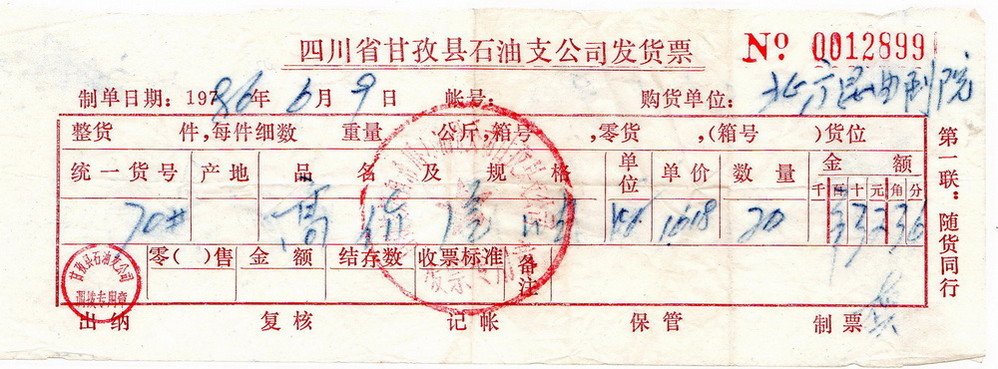 四川省甘孜县石油支公司发货票 № 0012899
制单日期: 197 86年 6月 9日 帐号: 购货单位: 北方昆曲剧院
整货 件,每件细数 重量 公斤,箱号 ,零货 ,(箱号 )货位
统一货号 产地 品名及规格 单位 单价 数量 金额
千 百 十 元 角 分
70# 20
零( )售 金额 结存数 收票标准 备注
甘孜县石油支公司
调拨专用章
出纳 复核 记帐 保管 制票
第一联:随货同行